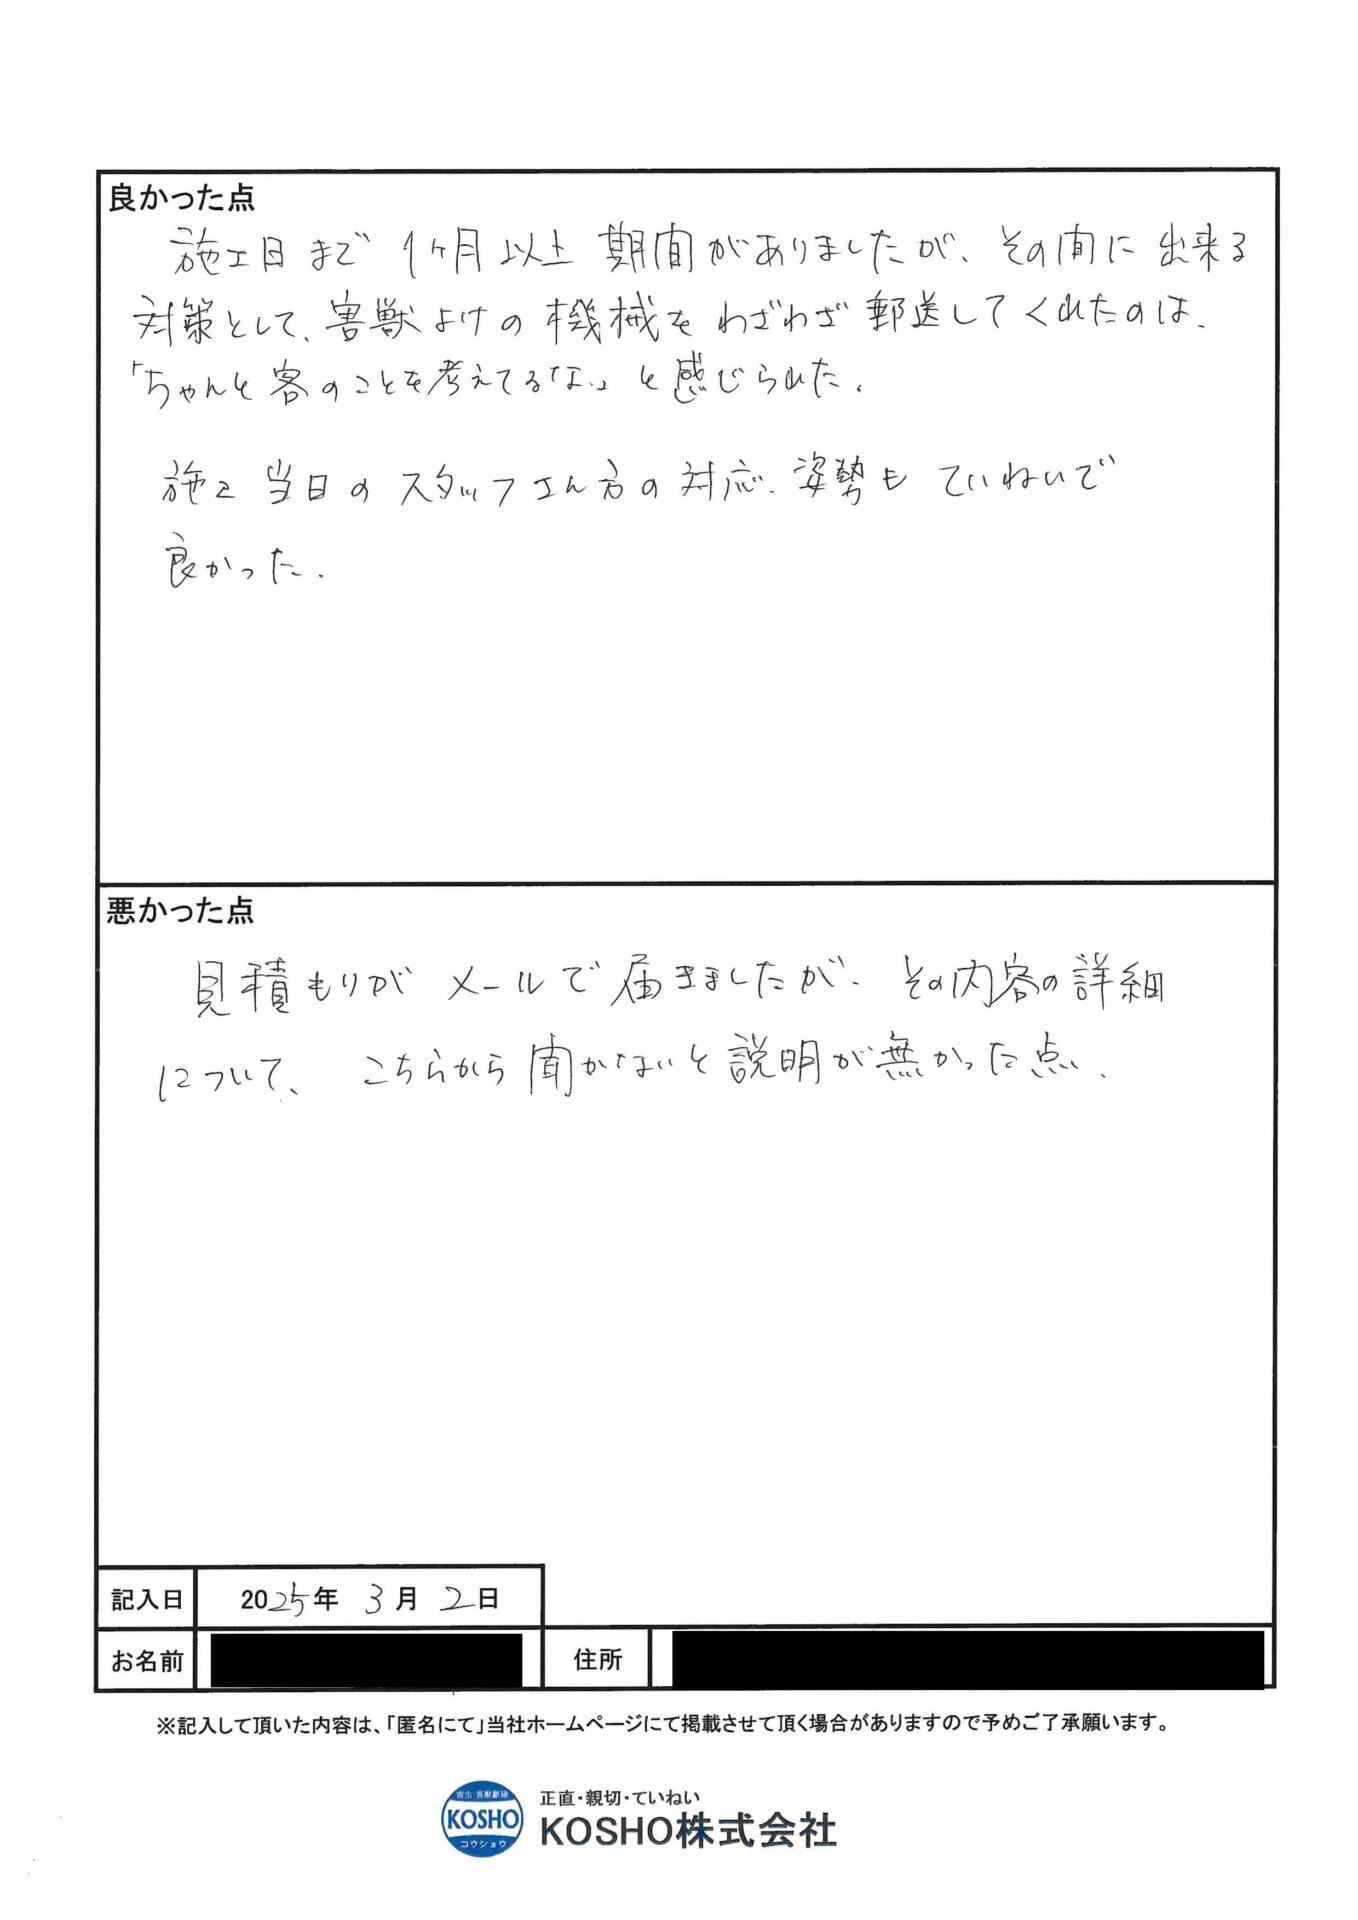 良かった点
施工日まで 1ヶ月以上 期間がありましたが、その間に出来る
対策として、害獣よけの機械をわざわざ郵送してくれたのは、
「ちゃんと客のことを考えてるな。」と感じられた。
施工当日のスタッフさん方の対応、姿勢もていねいで
良かった。
悪かった点
見積もりがメールで届きましたが、その内容の詳細
について、こちらから聞かないと説明が無かった点。
記入日 2025年 3月 2日
お名前 住所
※記入して頂いた内容は、「匿名にて」当社ホームページにて掲載させて頂く場合がありますので予めご了承願います。
害虫 害獣駆除
KOSHO
コウショウ
正直・親切・ていねい
KOSHO株式会社